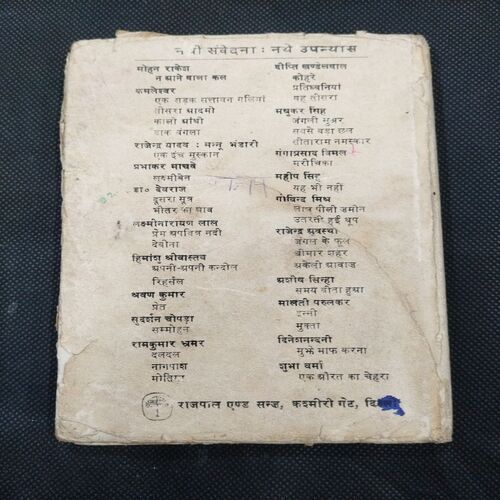 नयी संवेदना : नये उपन्यास
मोहन राकेश
न आने वाला कल
कमलेश्वर
एक सड़क सत्तावन गलियां
तीसरा आदमी
काली आंधी
डाक बंगला
राजेन्द्र यादव : मन्नू भंडारी
एक इंच मुस्कान
प्रभाकर माचवे
डा० देवराज
दूसरा सूत्र
भीतर का घाव
लक्ष्मीनारायण लाल
प्रेम अपवित्र नदी
देवीना
हिमांशु श्रीवास्तव
अपनी-अपनी कन्दील
रिहर्सल
श्रवण कुमार
प्रेत
सुदर्शन चोपड़ा
सम्मोहन
रामकुमार भ्रमर
दलदल
नागपाश
मोतिया
दीप्ति खण्डेलवाल
कोहरे
प्रतिध्वनियां
वह तीसरा
मधुकर सिंह
जंगली सुअर
सबसे बड़ा छल
सीताराम नमस्कार
गंगाप्रसाद विमल
मरीचिका
महीप सिंह
यह भी नहीं
गोविन्द मिश्र
लाल पीली ज़मीन
उतरती हुई धूप
राजेन्द्र अवस्थी
जंगल के फूल
बीमार शहर
अकेली आवाज़
अशोष सिन्हा
समय बीता हुआ
मालती परुलकर
इन्नी
मुक्ता
दिनेशनन्दिनी
मुझे माफ करना
शुभा वर्मा
एक औरत का चेहरा
राजपाल एण्ड सन्ज़, कश्मीरी गेट, दिल्ली